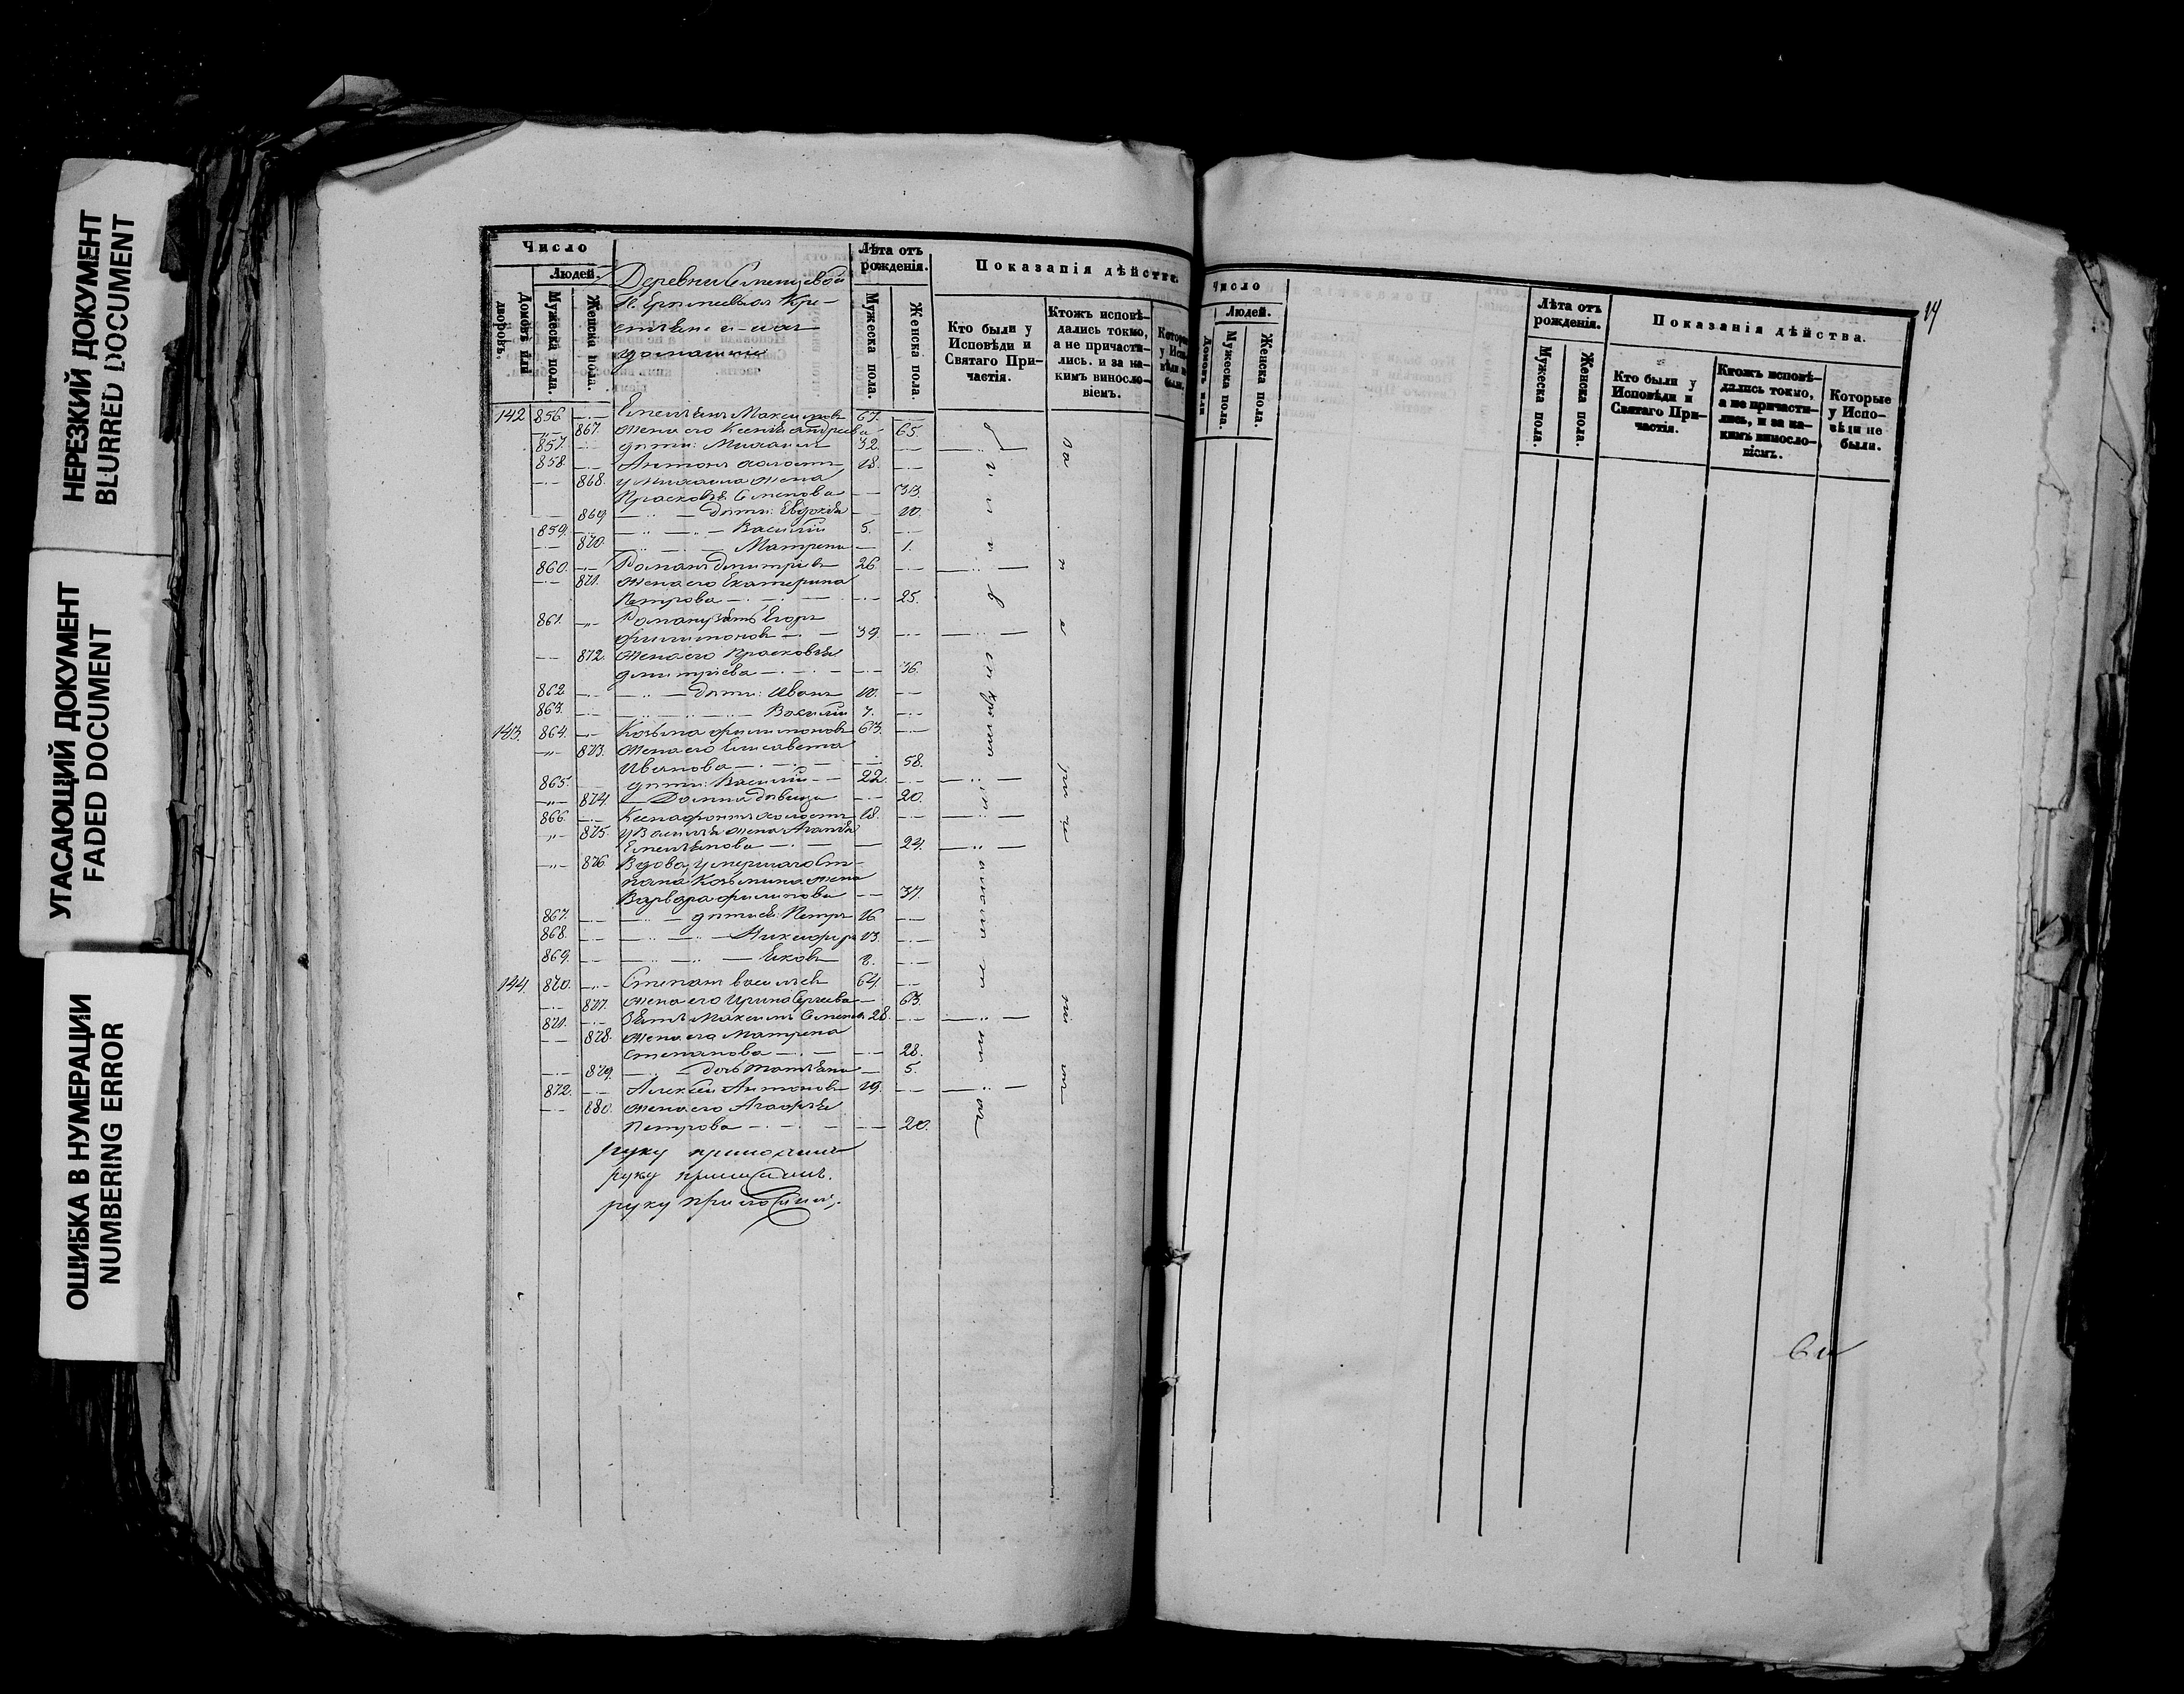 НЕРЕЗКИЙ ДОКУМЕНТ
BLURRED DOCUMENT
УГАСАЮЩИЙ ДОКУМЕНТ
FADED DOCUMENT
ОШИБКА В НУМЕРАЦИИ
NUMBERING ERROR
Число
Людей.
Домовъ или дворовъ.
Мужеска пола.
Женска пола.
Деревни
Кре-
стьяне и ихъ
домашнiе
Лѣта отъ рожденiя.
Мужеска пола.
Женска пола.
Показанiя дѣйства.
Кто были у Исповѣди и Святаго При-частiя.
Ктожъ исповѣ-дались токмо, а не причасти-лись. и за ка-кимъ винослo-вiемъ.
142 856 Емельянъ Максимовъ 67.
867. Жена его Ксенiя Андреева 65.
857. дѣти: Михаилъ 32.
858. Антонъ холостъ 18.
868. у Михаила жена
Прасковья Семенова 33.
869 дѣти: Евдокiя 10.
859. Василiй 5.
870. Матрена 1.
860. Романъ Дмитрiевъ 26
871. Жена его Екатерина
Петрова 25.
861. Романа зять Егоръ
Филимоновъ 39.
872. Жена его Прасковья
Дмитрiева 36.
862. дѣти: Иванъ 10.
863. Василiй 7.
143. 864. Козьма Филимоновъ 63.
873. Жена его Елисавета
Иванова 58.
865. дѣти: Василiй 22.
874. Домна дѣвица 20.
866. Ксенофонтъ холостъ 18.
875. у Василья жена Агапiя
Емельянова 24.
876 Вдова, умершаго Сте-
пана Козьмина жена
Варвара Филипова 37.
867. дѣти ея: Петръ 16.
868. Никифоръ 13.
869. Яковъ 8.
144. 870. Степанъ Васильевъ 64.
877. Жена его Ирина Сергѣева 63.
871. Зять Максимъ Семеновъ 28.
878. Жена его Матрена
Степанова 28.
879. дочь Татьяна 5.
872. Алексѣй Антоновъ 19.
880. Жена его Агафья
Петрова 20.
руку приложилъ
руку приложилъ.
руку приложилъ.
14
Число
Людей.
Мужеска пола.
Женска пола.
Лѣта отъ рожденiя.
Мужеска пола.
Женска пола.
Показанiя дѣйства.
Кто были у Исповѣди и Святаго При-частiя.
Ктожъ исповѣ-дались токмо, а не причасти-лись, и за ка-кимъ винослo-вiемъ.
Которые у Испо-вѣди не были.